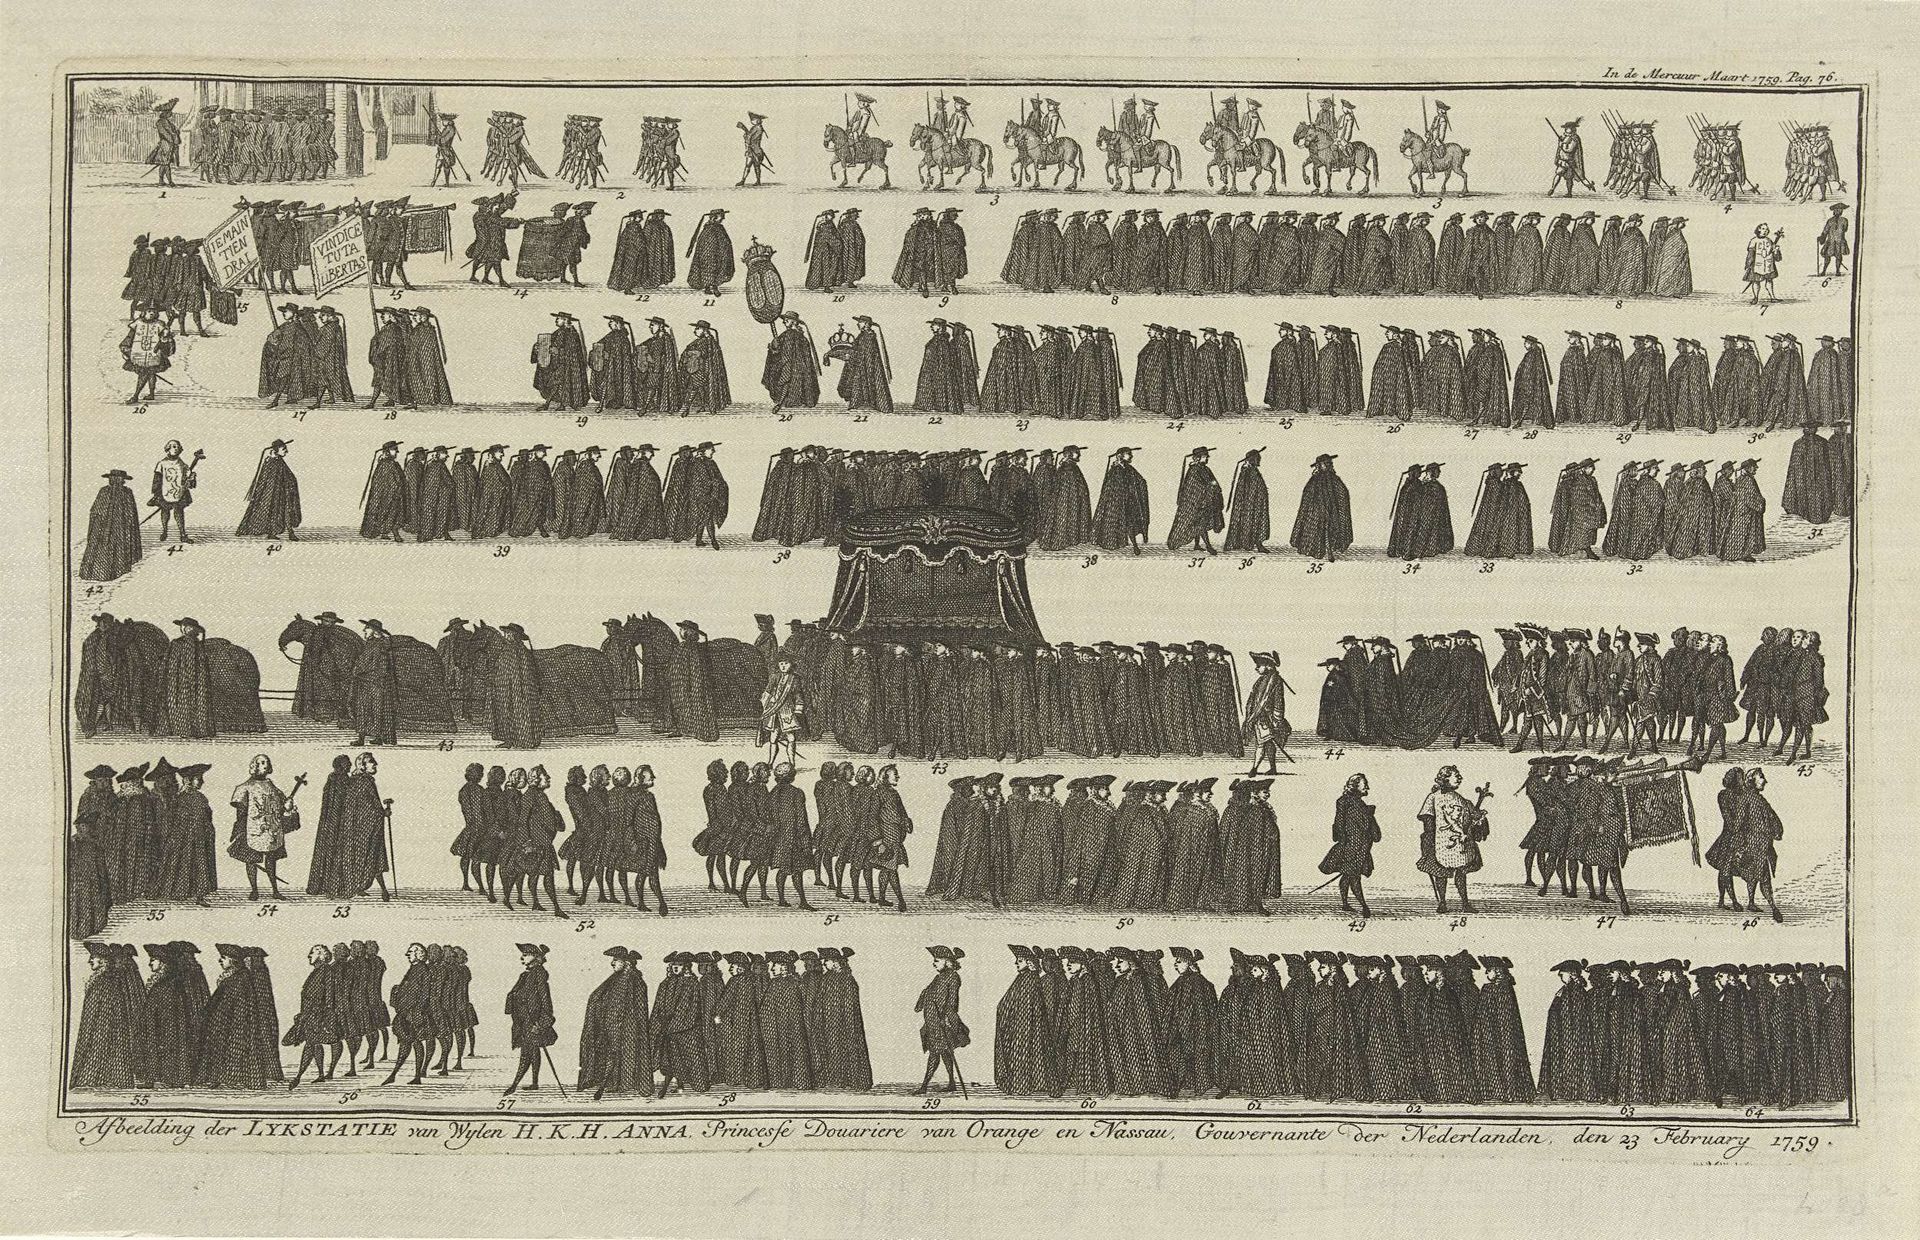 In de Mercuur Maart 1759. Pag. 76.
1 2 3 3 4
IEMAIN
TIEN
DRAI
VINDICE
TUTA
LIBERTAS
15 15 14 12 11 10 9 8 8 7 6
16 17 18 19 20 21 22 23 24 25 26 27 28 29 30
42 41 40 39 38 38 37 36 35 34 33 32 31
43 43 44 45
55 54 53 52 51 50 49 48 47 46
55 56 57 58 59 60 61 62 63 64
Afbeelding der LYKSTATIE van Wylen H. K. H. ANNA, Princesse Douariere van Orange en Nassau, Gouvernante der Nederlanden, den 23 February 1759.